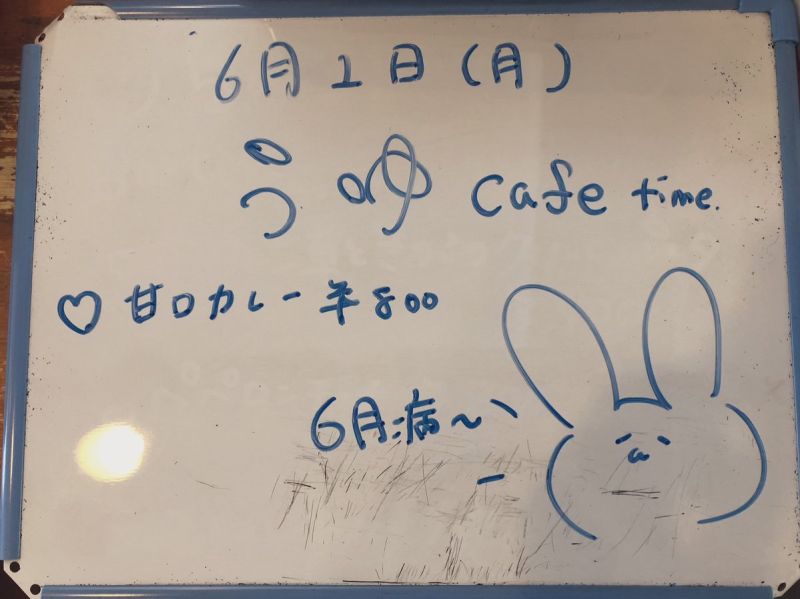 6月1日(月)
うゆ cafe time.
♡甘口カレー ¥800
6月病〜